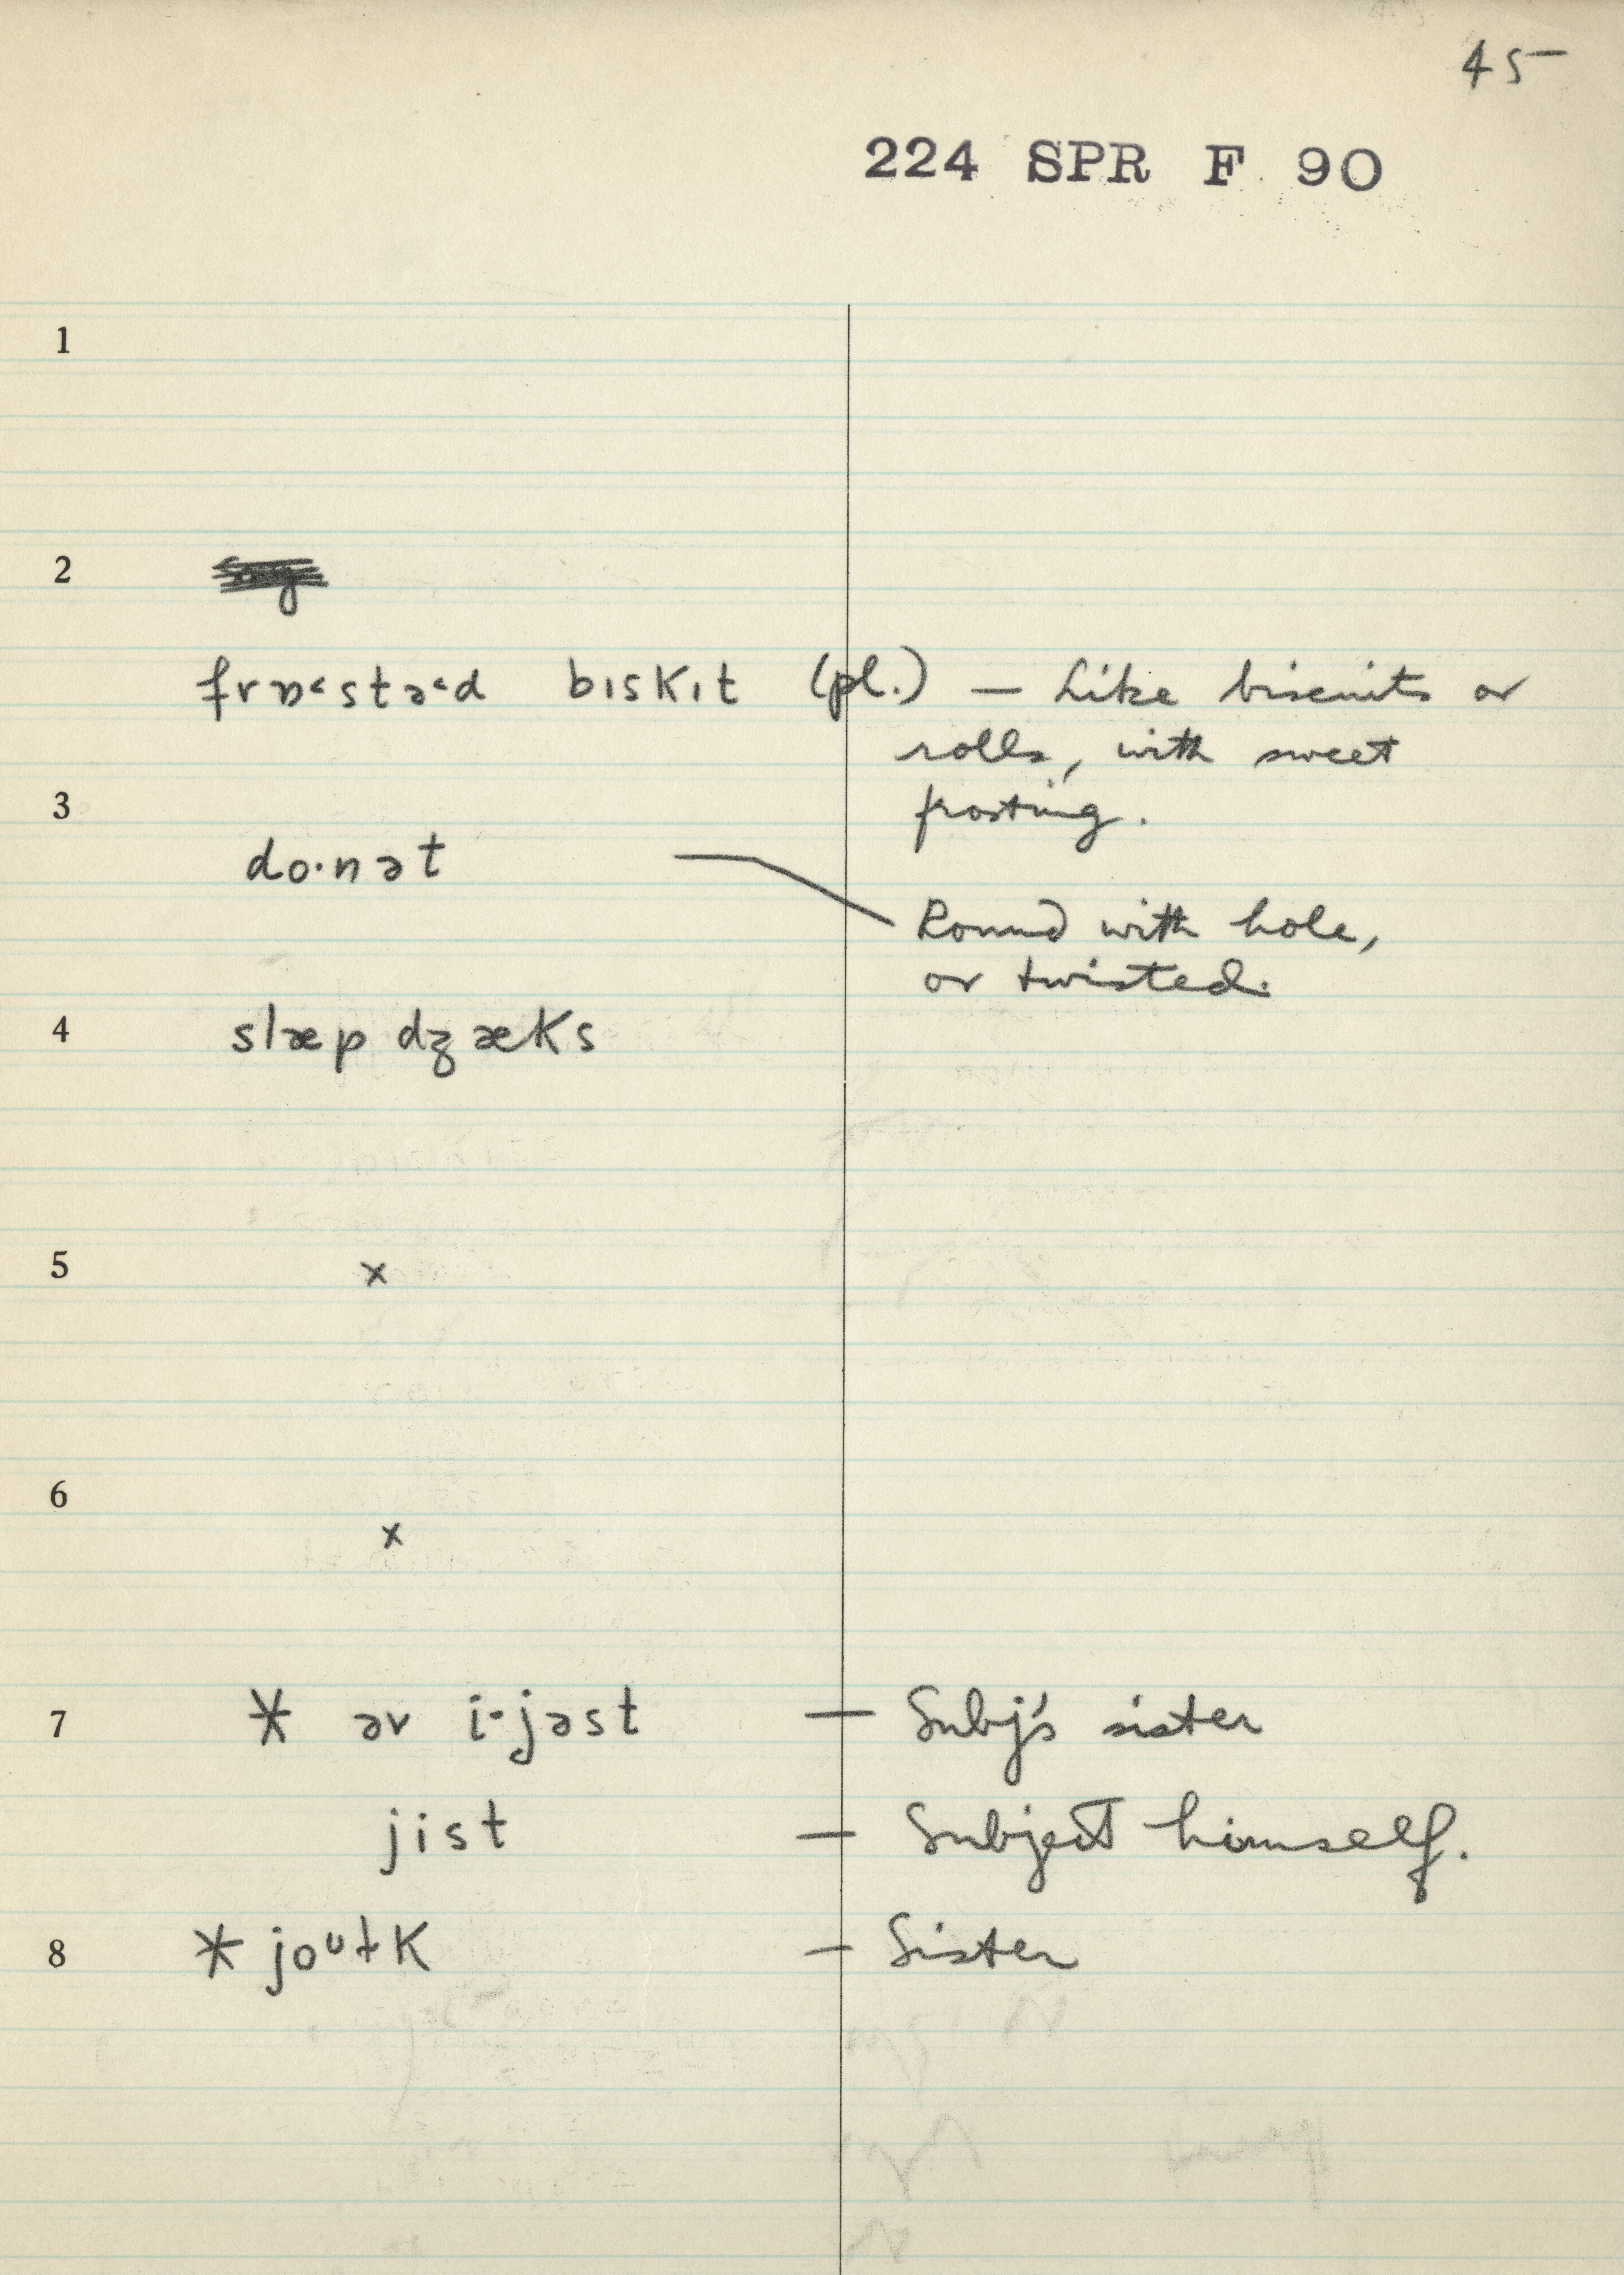 45
224 SPR F 90
1
2
frɒ˂stə˂d bɪskɪt (pl.) — Like biscuits or
rolls, with sweet
frosting.
3
do·nət
Round with hole,
or twisted.
4 slæp dʒæks
5 x
6
x
7 * əv i·jəst — Subj's sister
jist — Subject himself.
8 * joᶷɫk — Sister